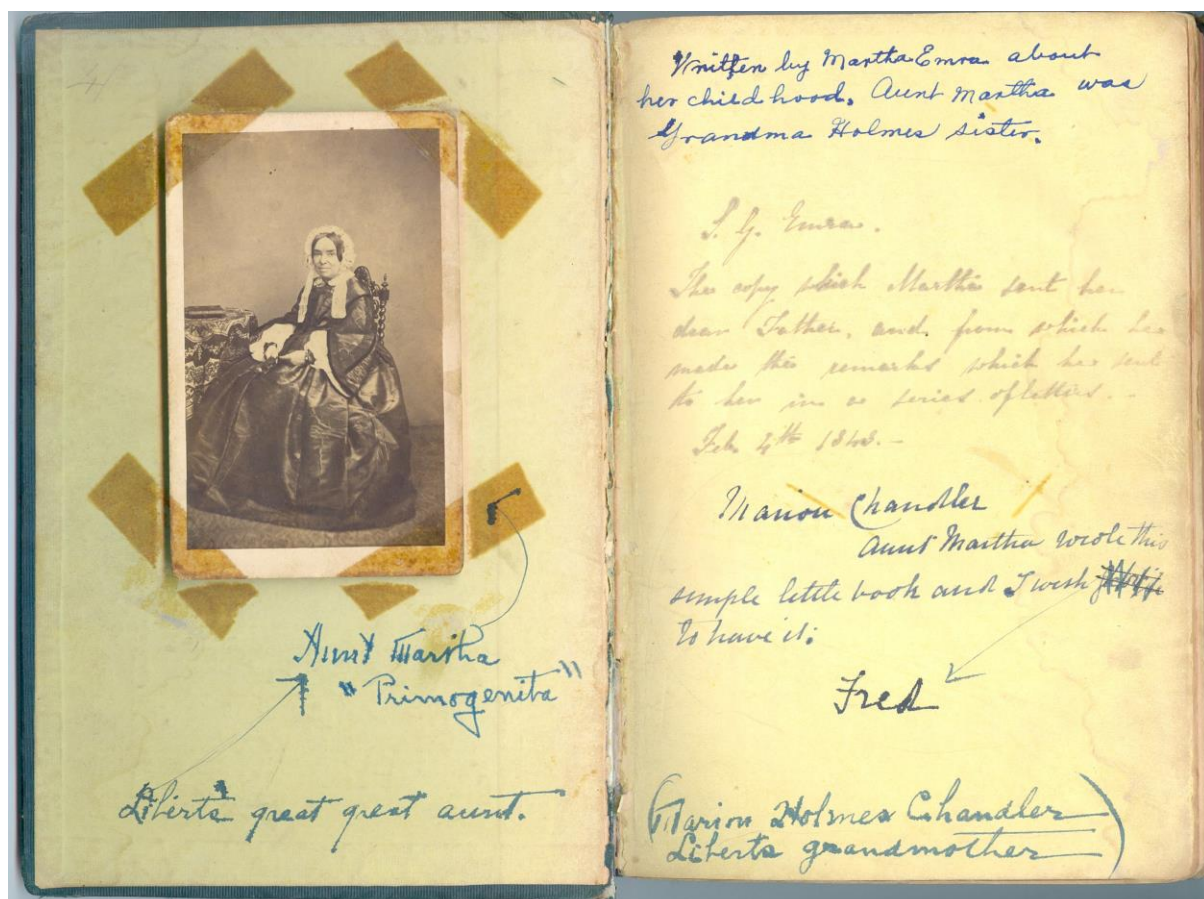 Aunt Martha
"Primogenita"
Liberta's great great aunt.
Written by Martha Emra about
her childhood. Aunt Martha was
Grandma Holmes' sister.
S. G. Emra.
The copy which Martha sent her
dear Father, and from which he
made the remarks which he sent
to her in a series of letters. -
Feb. 4th 
Marion Chandler
Aunt Martha wrote this
simple little book and I wish
to have it:
Fred
(Marion Holmes Chandler
Liberta grandmother)